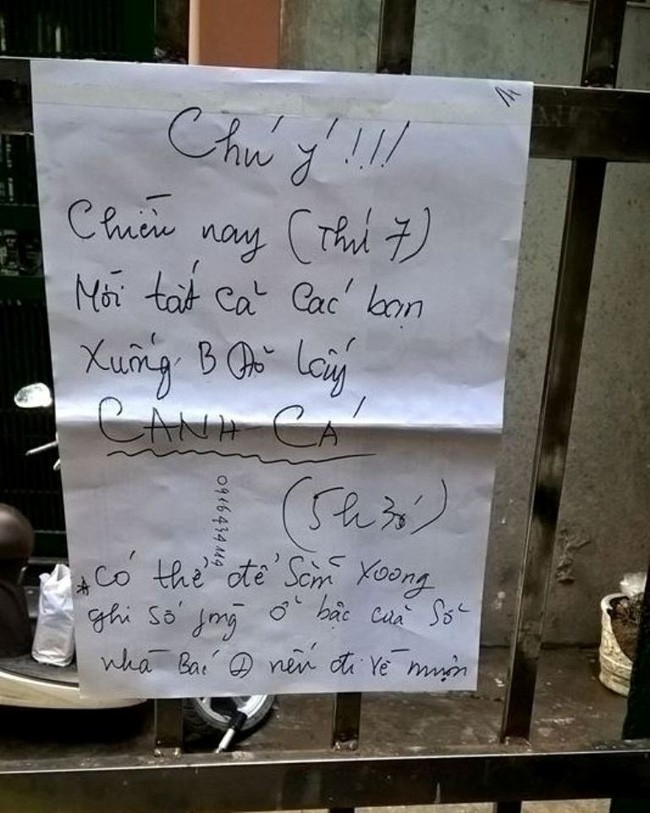 Chú ý!!!
Chiều nay (Thứ 7)
Mời tất cả các bạn
Xuống B lấy
CANH CÁ
(5h30)
*Có thể để sẵn xoong
ghi số ở bậc cửa sổ
nhà Bác nếu đi về muộn